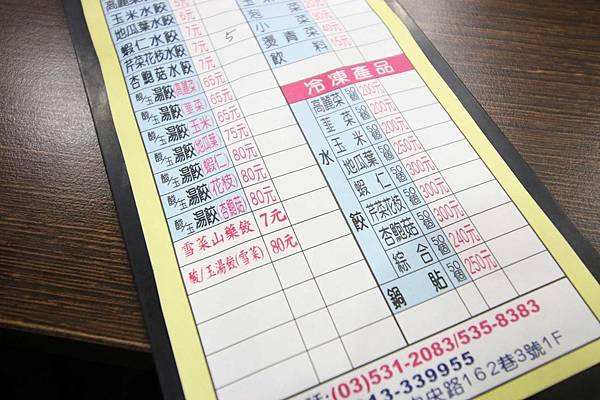 高麗菜水餃
玉米水餃 6元
地瓜葉水餃 6元
蝦仁水餃 7元 5
芹菜花枝水餃 7元
杏鮑菇水餃 7元
酸/玉湯餃(高麗菜) 65元
酸/玉湯餃(韭菜) 65元
酸/玉湯餃(玉米) 65元
酸/玉湯餃(地瓜葉) 75元
酸/玉湯餃(蝦仁) 80元
酸/玉湯餃(花枝) 80元
酸/玉湯餃(杏鮑菇) 80元
雪菜山藥餃 7元
酸/玉湯餃(雪菜) 80元
泡菜
小菜
燙青菜
飲料
冷凍產品
水餃
高麗菜 50個 200元
韭菜 50個 200元
玉米 50個 200元
地瓜葉 50個 250元
蝦仁 50個 300元
芹菜花枝 50個 300元
杏鮑菇 50個 300元
綜合 50個 240元
鍋貼 50個 250元
話:(03)531-2083/535-8383
13-339955
中央路162巷3號1F